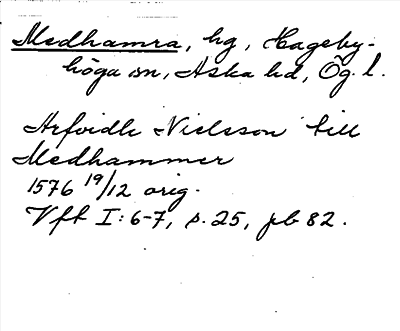 Medhamra, hg, Hageby-
höga sn, Aska hd, Ög. l.
Arfvidh Nielsson till
Medhammer
1576 19/12 orig.
Vft I: 6-7, s. 25, pb 82.